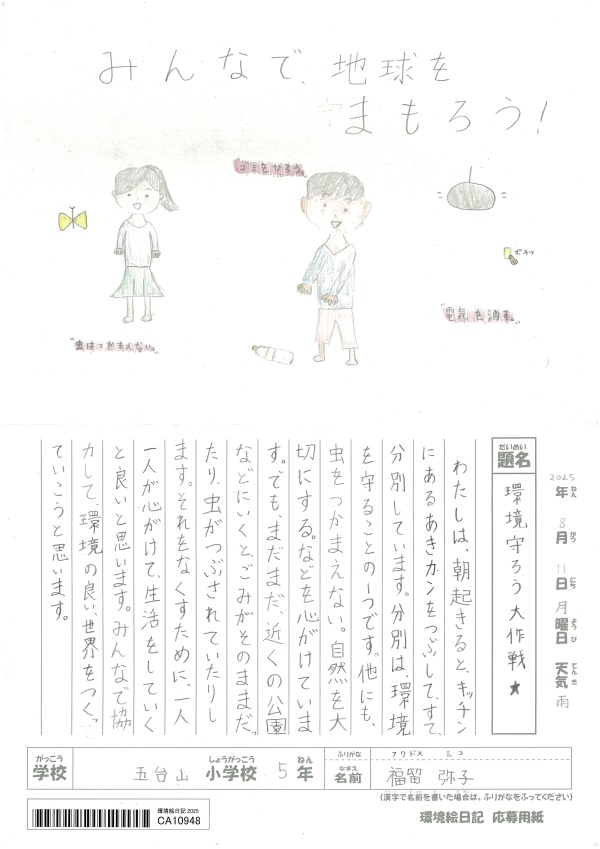 みんなで、地球を
まもろう!
ゴミをひろう。
ポチッ
"電気を消す。"
だいめい
題名
環境守ろう大作戦★
2025年ねん 8月がつ 11日にち 月曜日ようび 天気てんき 雨
わたしは、朝起きると、キッチン
にあるあきカンをつぶして、すて、
分別しています。分別は、環境
を守ることの一つです。他にも、
虫をつかまえない。自然を大
切にする。などを心がけていま
す。でも、まだまだ、近くの公園
などにいくと、ごみがそのままだっ
たり、虫がつぶされていたりし
ます。それをなくすために、一人
一人が心がけて、生活をしていく
と良いと思います。みんなで協
力して、環境の良い、世界をつくっ
ていこうと思います。
がっこう
学校
五台山
しょうがっこう
小学校
5
ねん
年
ふりがな
フクドメ ミコ
なまえ
名前
福留 弥子
(漢字で名前を書いた場合は、ふりがなをふってください)
環境絵日記 2025
CA10948
環境絵日記 応募用紙